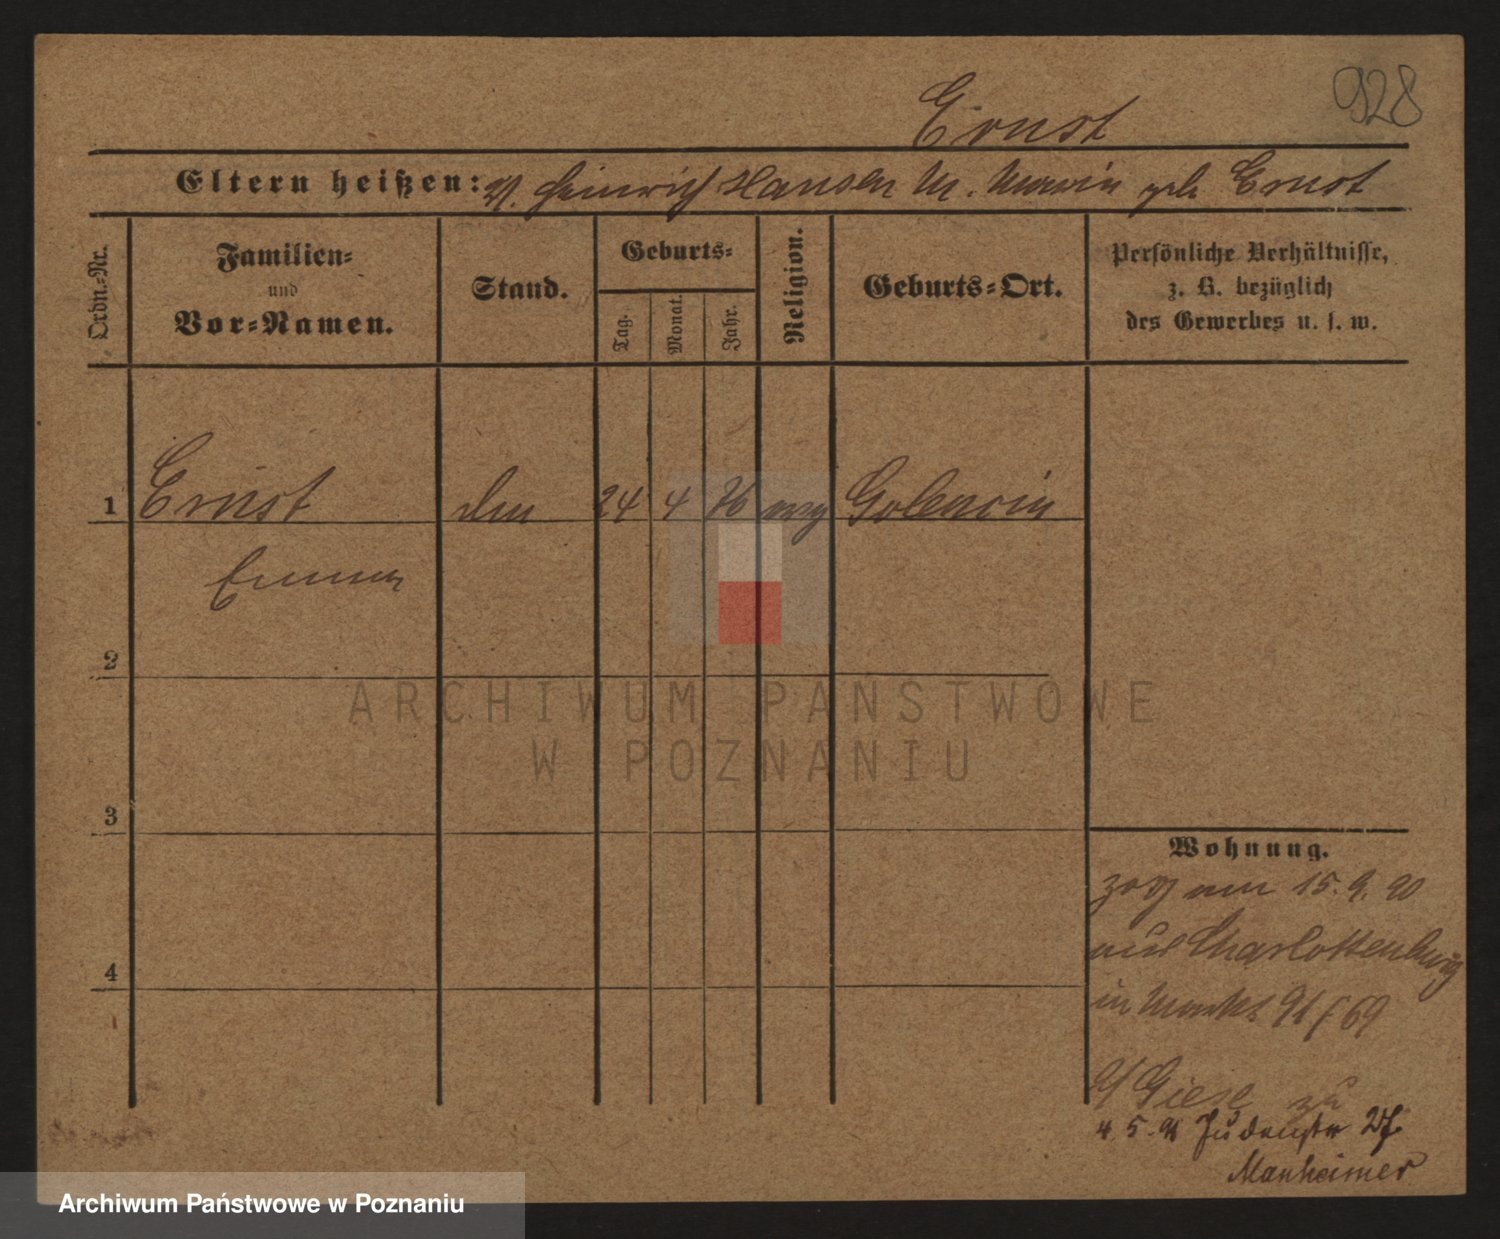 928
Ernst
Eltern heißen: V. Heinrich Hansen M. Maria geb Ernst
Ordn.-Nr.
Familien-
und
Vor-Namen.
Stand.
Geburts-
Tag.
Monat.
Jahr.
Religion.
Geburts-Ort.
Persönliche Verhältnisse,
z. B. bezüglich
des Gewerbes u. s. w.
1 Ernst 24 4 76 evg Golencin
Emma
2
3
4
Wohnung.
zog am 15. 9. 90
aus Charlottenburg
in Markt 91 / 69
Giese zu
4. 5. 91 Judenstr
Manheimer
ARCHIWUM PAŃSTWOWE
W POZNANIU
Archiwum Państwowe w Poznaniu